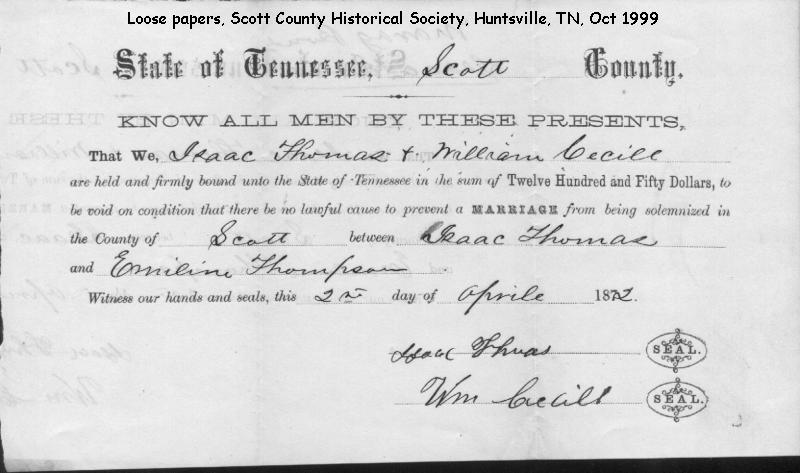 Loose papers, Scott County Historical Society, Huntsville, TN, Oct 1999
State of Tennessee, Scott County.
KNOW ALL MEN BY THESE PRESENTS,
That We, Isaac Thomas + William Cecill
are held and firmly bound unto the State of Tennessee in the sum of Twelve Hundred and Fifty Dollars, to
be void on condition that there be no lawful cause to prevent a MARRIAGE from being solemnized in
the County of Scott between Isaac Thomas
and Emiline Thompson
Witness our hands and seals, this 2nd day of Aprile 1872.
Isaac Thuas SEAL.
Wm Cecill SEAL.